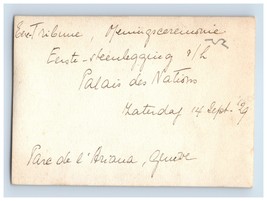 Tribune, Openingsceremonie
Eerste-steenlegging v/h
Palais des Nations
Zaterdag 14 Sept.
Parc de l'Ariana, Genève